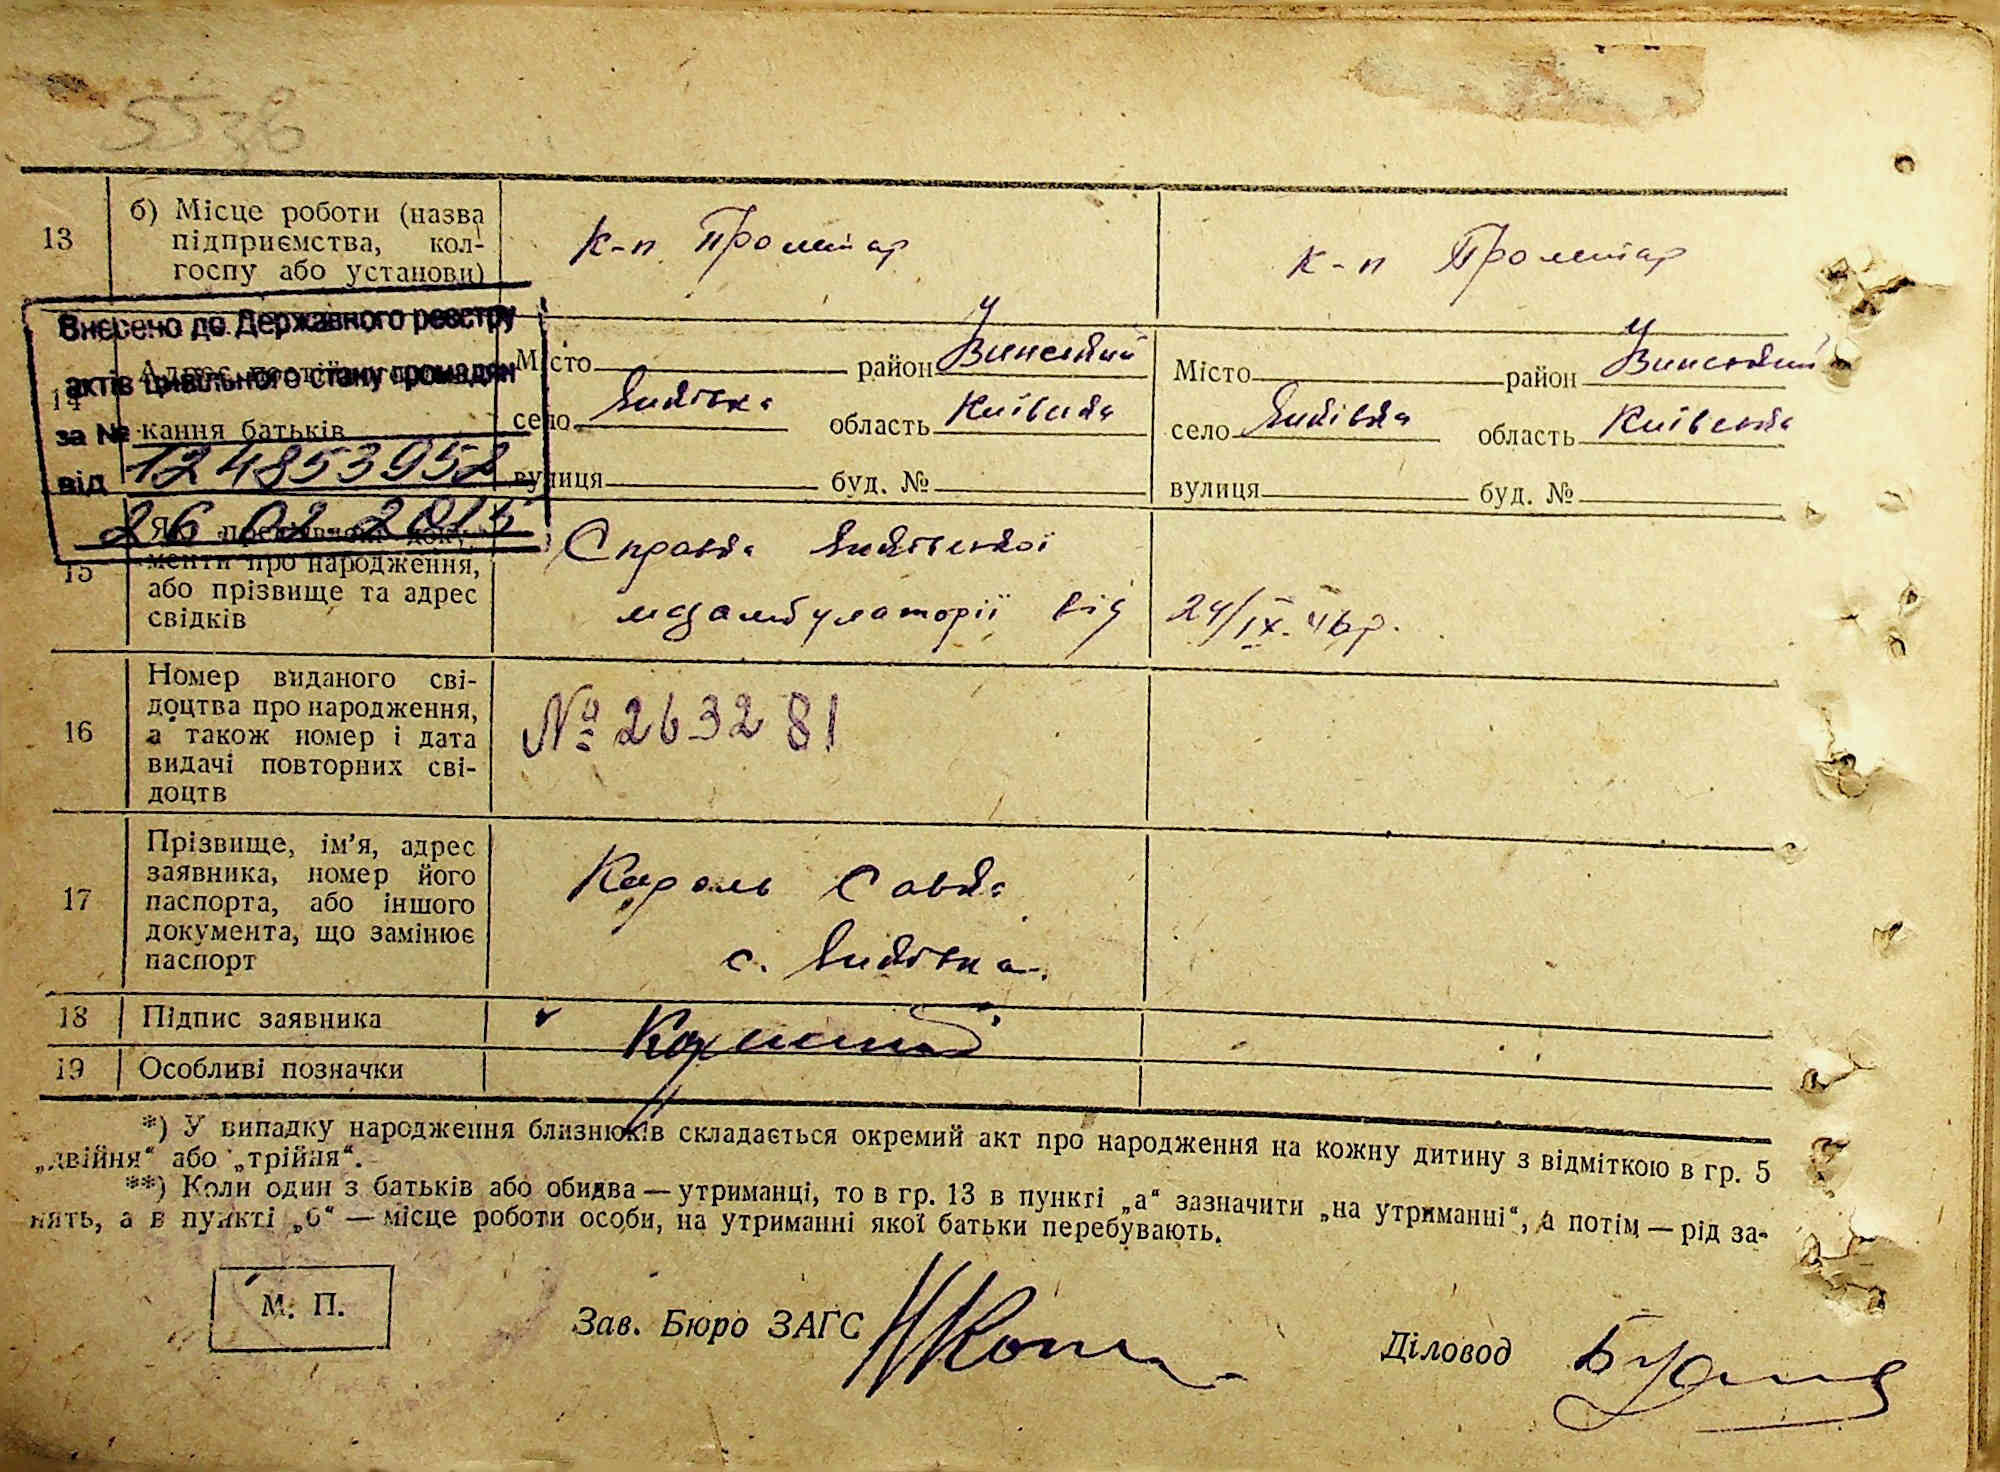 13
б) Місце роботи (назва
підприємства, кол-
госпу або установи)
К-п Пролетар
К-п Пролетар
Внесено до Державного реєстру
актів цивільного стану громадян
за №
124853952
від
26 02 2015
14
кання батьків
Місто район
село область Київська
вулиця буд. №
Місто район
село область Київська
вулиця буд. №
15
менти про народження,
або прізвище та адрес
свідків
Справка
медамбулаторії від 24/IX-46р.
16
Номер виданого сві-
доцтва про народження,
а також номер і дата
видачі повторних сві-
доцтв
№ 263281
17
Прізвище, ім’я, адрес
заявника, номер його
паспорта, або іншого
документа, що замінює
паспорт
Король Савка
с.
18
Підпис заявника
19
Особливі позначки
*) У випадку народження близнюків складається окремий акт про народження на кожну дитину з відміткою в гр. 5
„двійня“ або „трійня“.
**) Коли один з батьків або обидва — утриманці, то в гр. 13 в пункті „а“ зазначити „на утриманні“, а потім — рід за-
нять, а в пункті „б“ — місце роботи особи, на утриманні якої батьки перебувають.
М. П.
Зав. Бюро ЗАГС
Діловод